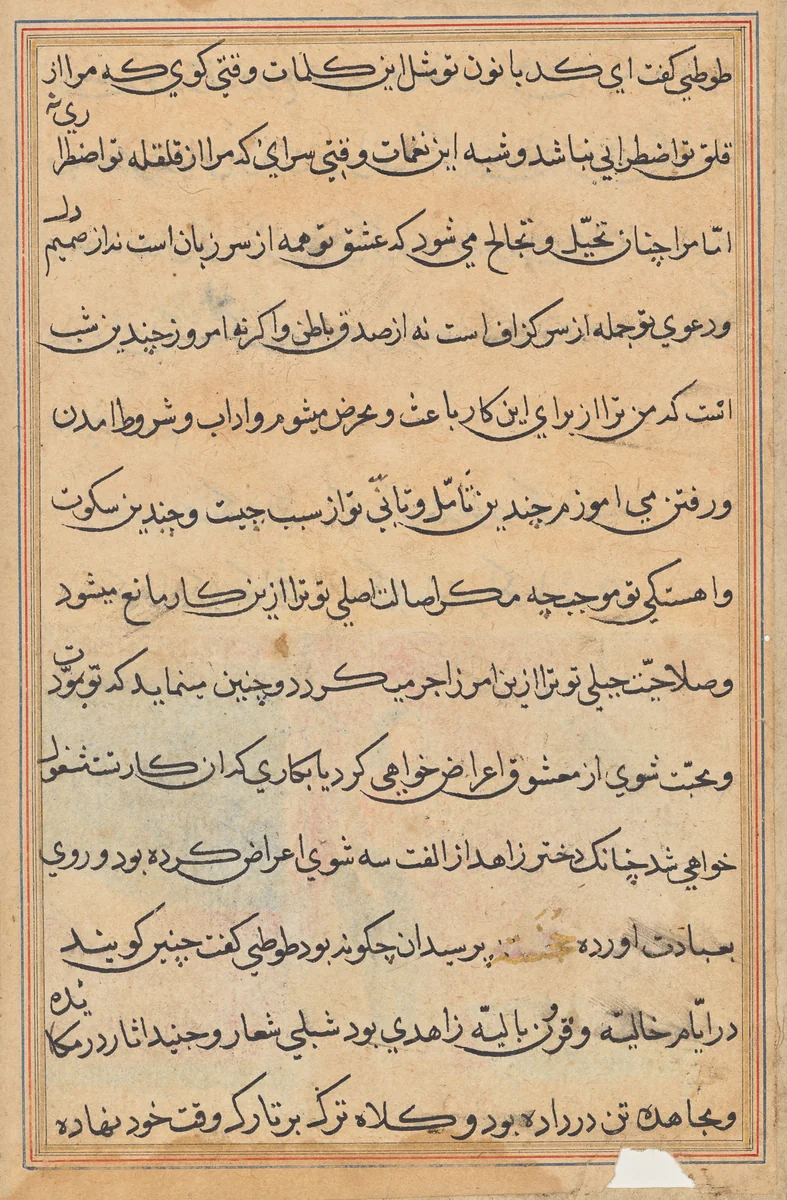 طوطی کفت ای کد بانون تو مثل این کلمات وقتی کوی که مرا از
قلق تو اضطرابی نباشد و شبه این نغمات وقتی سرای که مرا از قلقله تو اضطراری نه
امّا مرا چنان تخیّل و تخالج می شود که عشق تو همه از سر زبان است نه از صمیم دل
ودعوی تو جمله از سر کزاف است نه از صدق باطن واکرنه امروز چندین شب
است که من ترا از برای این کار باعث و محرض میشوم واداب و شروط امدن
ورفتن می اموزم چندین تأمّل و تانّی تو از سبب چیست و چندین سکوت
واهستکی تو موجب چه مکر اصالت اصلی تو ترا ازین کار مانع میشود
وصلاحیّت جبلی تو ترا ازین امر زاجر میکردد و چنین مینماید که تو بموّدت
ومحبّت شوی از معشوق اعراض خواهی کرد یا بکاری که ان کار تست مشغول
خواهی شد چنانک دختر زاهد از الفت سه شوی اعراض کرده بود و روی
بعبادت اورده خجسته پرسید ان چکونه بود طوطی کفت چنین کویند
در ایّام خالیّه و قرون بالیّه زاهدی بود شبلی شعار و جنید اثار در مکایده
ومجاهده تن درداده بود و کلاه ترک بر تارک وقت خود نهاده